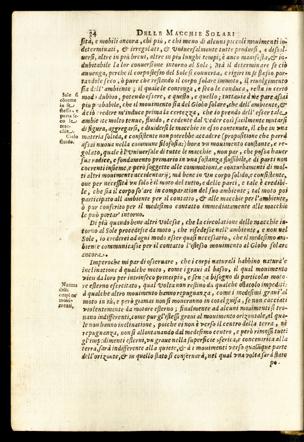 34 DELLE MACCHIE SOLARI
sità, e mobili ancora, chi più, e chi meno di alcuni piccoli movimenti in-
determinati, & irregolati, & vniversalmente tutte prodursi, e dissol-
versi, altre in più brevi, altre in più lunghi tempi; è anco manifesta, & in-
dubitabile la lor conversione intorno al Sole; Mà il determinare se ciò
avvenga, perche il corpo stesso del Sole si converta, e rigiri in se stesso por-
tandole, ò pure, che restando il corpo solare immoto, il rivolgimento
sia dell'ambiente; il quale le contenga, e seco le conduca, resta in certo
modo dubbio, potendo essere, e questo, e quello; tuttavia à me pare assai
più probabile, che il movimento sia del Globo solare, che dell'ambiente, &
à ciò credere m'induce prima la certezza, che io prendo dell'esser tale am-
biente molto tenue, fluido, e cedente dal veder così facilmente mutarsi
di figura, aggregarsi, e dividersi le macchie in esso contenute, il che in vna
materia solida, e consistente non potrebbe accadere (proposizione, che
parrà assai nuova nella commune filosofia;) hora vn movimento costante, e re-
golato, quale è l'vniversale di tutte le macchie, non par, che possa haver
sua radice, e fondamento primario in vna sostanza flussibile, e di parti non
coerenti insieme, e però soggette alle commotioni, e conturbamenti di mol-
ti altri movimenti accidentarij; mà bene in vn corpo solido, e consistente,
oue per necessità vn solo è il moto del tutto, e delle parti, e tale è credibi-
le, che sia il corpo solare in comparatione del suo ambiente; tal moto poi
participato all'ambiente per il contatto, & alle macchie per l'ambiente,
ò pur conferito per il medesimo contatto immediatamente alle macchie
le può portar' intorno.
Di più quando bene altri volesse, che la circolatione delle macchie in-
torno al Sole procedesse da moto, che risedesse nell'ambiente, e non nel
Sole, io crederei ad ogni modo esser quasi necessario, che il medesimo am-
biente communicasse per il contatto l'istesso movimento al Globo solare
ancora.
Imperoche mi par di osservare, che i corpi naturali habbino natural'
inclinatione à qualche moto, come i gravi al basso, il qual movimento
vien da loro per intrinseco principio, e senza bisogno di particolar moto-
re esterno esercitato, qual volta non restino da qualche ostacolo impediti:
à qualche altro movimento hanno repugnanza, come i medesimi gravi al
moto in sù, e però giamai non si moveranno in cotal guisa, se non cacciati
violentemente da motore esterno; finalmente ad alcuni movimenti si tro-
vano indifferenti, come pur gl'istessi gravi al movimento orizontale, al qua-
le non hanno inclinatione, poiche ei non è verso il centro della terra, nè
repugnanza, non si allontanando dal medesimo centro, e però rimossi tutti
gl'impedimenti esterni, vn grave nella superficie sferica, e concentrica alla
terra, sarà indifferente alla quiete, & à i movimenti verso qualunque parte
dell'orizonte, & in quello stato si conserverà, nel qual vna volta sarà stato
po-